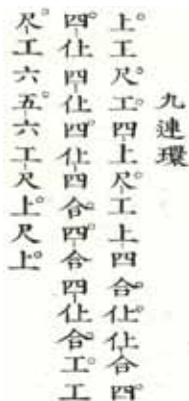 九連環
上工尺工四上尺工上四合仩仩合四
四仩四仩四仩四合四合四仩合工工
尺工六五六工尺上尺上